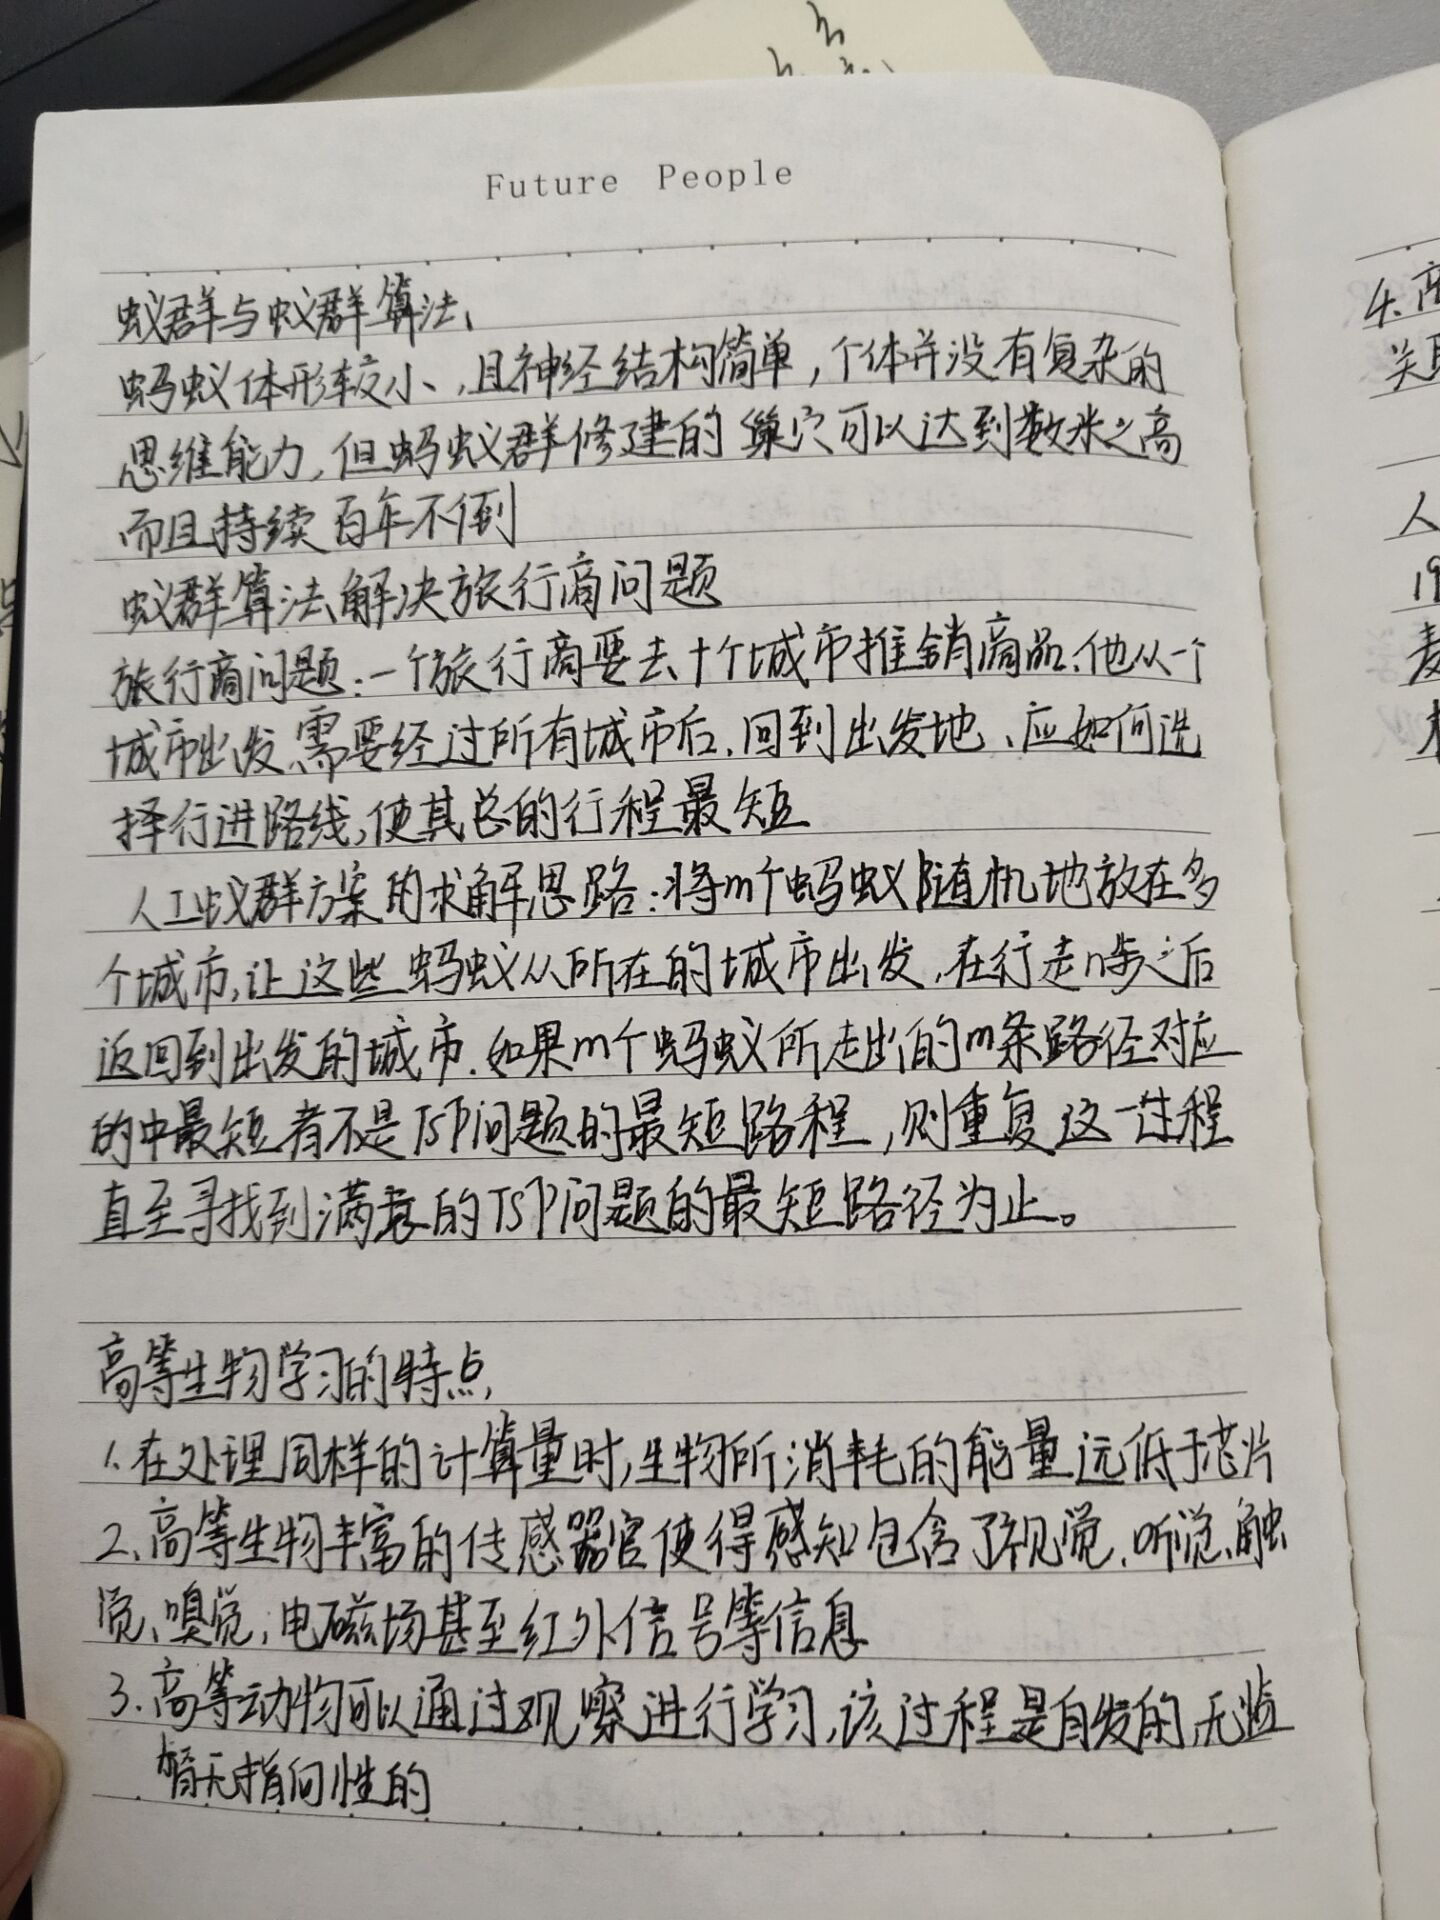 Future People
蚁群与蚁群算法、
蚂蚁体形较小、且神经结构简单，个体并没有复杂的
思维能力，但蚂蚁群修建的巢穴可以达到数米之高
而且持续百年不倒
蚁群算法解决旅行商问题
旅行商问题：一个旅行商要去十个城市推销商品.他从一个
城市出发、需要经过所有城市后.回到出发地、应如何选
择行进路线，使其总的行程最短
人工蚁群方案的求解思路：将m个蚂蚁随机地放在多
个城市，让这些蚂蚁从所在的城市出发，在行走n步之后
返回到出发的城市.如果m个蚂蚁所走出的m条路径对应
的中最短者不是TSP问题的最短路程，则重复这一过程
直至寻找到满意的TSP问题的最短路径为止。
高等生物学习的特点，
1、在处理同样的计算量时，生物所消耗的能量远低于芯片
2、高等生物丰富的传感器官使得感知包含了视觉、听觉、触
觉、嗅觉，电磁场甚至红外信号等信息
3.高等动物可以通过观察进行学习，该过程是自发的，无监
督无指向性的
4.高
关联
人
19
麦